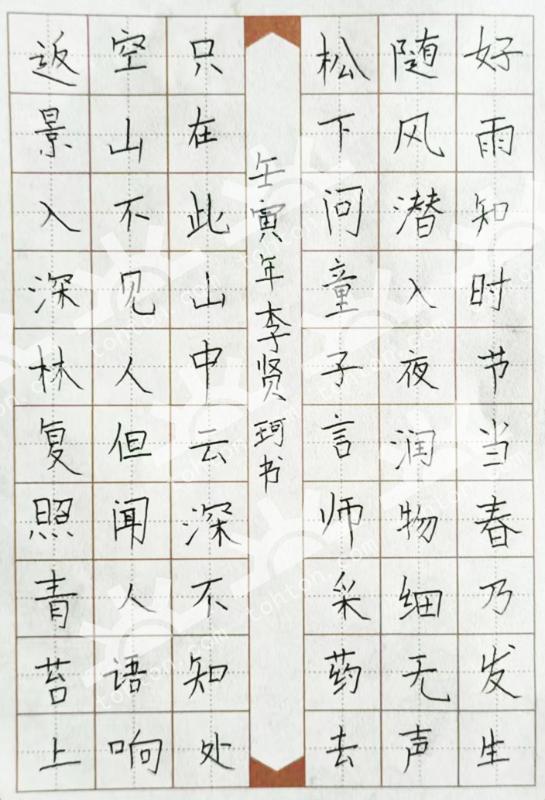 好雨知时节当春乃发生
随风潜入夜润物细无声
松下问童子言师采药去
壬寅年李贤珂书
只在此山中云深不知处
空山不见人但闻人语响
返景入深林复照青苔上
tohton.com